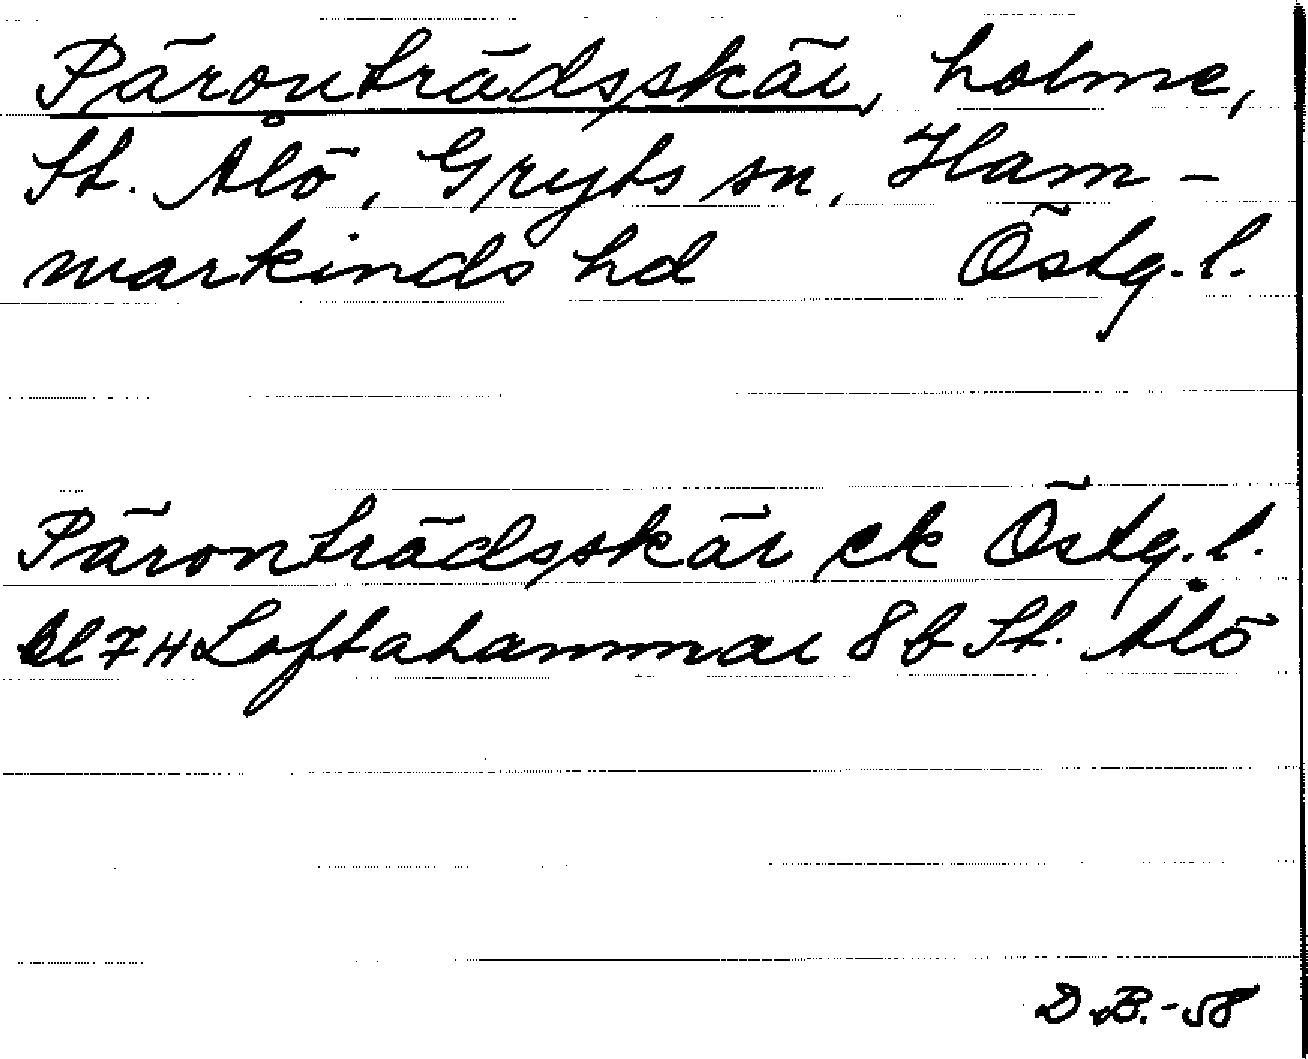 Päronträdsskär, holme,
St. Ålö, Gryts sn, Ham-
markinds hd Östg. l.
Päronträdsskär ek Östg. l.
Bl 7 H Loftahammar 8 b St. Ålö
D.B.-58